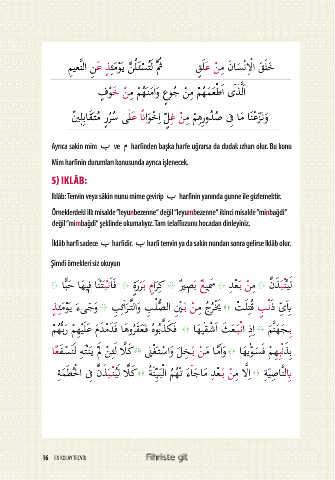 خَلَقَ الْاِنْسَانَ مِنْ عَلَقٍ ثُمَّ لَتُسْئَلُنَّ يَوْمَئِذٍ عَنِ النَّعِيمِ
اَلَّذٖى اَطْعَمَهُمْ مِنْ جُوعٍ وَاٰمَنَهُمْ مِنْ خَوْفٍ
وَنَزَعْنَا مَا فٖى صُدُورِهِمْ مِنْ غِلٍّ اِخْوَانًا عَلٰى سُرُرٍ مُتَقَابِلٖينَ
Ayrıca sakin mim م ve ب harfinden başka harfe uğrarsa da dudak izharı olur. Bu konu
Mim harfinin durumları konusunda ayrıca işlenecek.
5) IKLÂB:
Iklâb: Tenvin veya sâkin nunu mime çevirip ب harfinin yanında gunne ile gizlemektir.
Örneklerdeki ilk misalde "leyunbezenne" değil "leyumbezenne" ikinci misalde "minbağdi"
değil "mimbağdi" şeklinde okumalıyız. Tam telaffuzunu hocadan dinleyiniz.
İklâb harfi sadece ب harfidir. ب harfi tenvin ya da sakin nundan sonra gelirse iklâb olur.
Şimdi örnekleri siz okuyun
لَيُنْبَذَنَّ ۞ مِنْ بَعْدِ ۞ سَمٖيعٌ بَصٖيرٌ ۞ كِرَامٍ بَرَرَةٍ ۞ فَاَنْبَتْنَا فٖيهَا حَبًّا ۞
بِاَىِّ ذَنْبٍ قُتِلَتْ ۞ يَخْرُجُ مِنْ بَيْنِ الصُّلْبِ وَالتَّرَائِبِ ۞ وَجٖىءَ يَوْمَئِذٍ
بِجَهَنَّمَ ۞ اِذِ انْبَعَثَ اَشْقٰيهَا ۞ فَكَذَّبُوهُ فَعَقَرُوهَا فَدَمْدَمَ عَلَيْهِمْ رَبُّهُمْ
بِذَنْبِهِمْ فَسَوّٰيهَا ۞ وَاَمَّا مَنْ بَخِلَ وَاسْتَغْنٰى ۞ كَلَّا لَئِنْ لَمْ يَنْتَهِ لَنَسْفَعًا
بِالنَّاصِيَةِ ۞ اِلَّا مِنْ بَعْدِ مَا جَاءَتْهُمُ الْبَيِّنَةُ ۞ كَلَّا لَيُنْبَذَنَّ فِى الْحُطَمَةِ
16 EN KOLAY TECVİD
Fihriste git